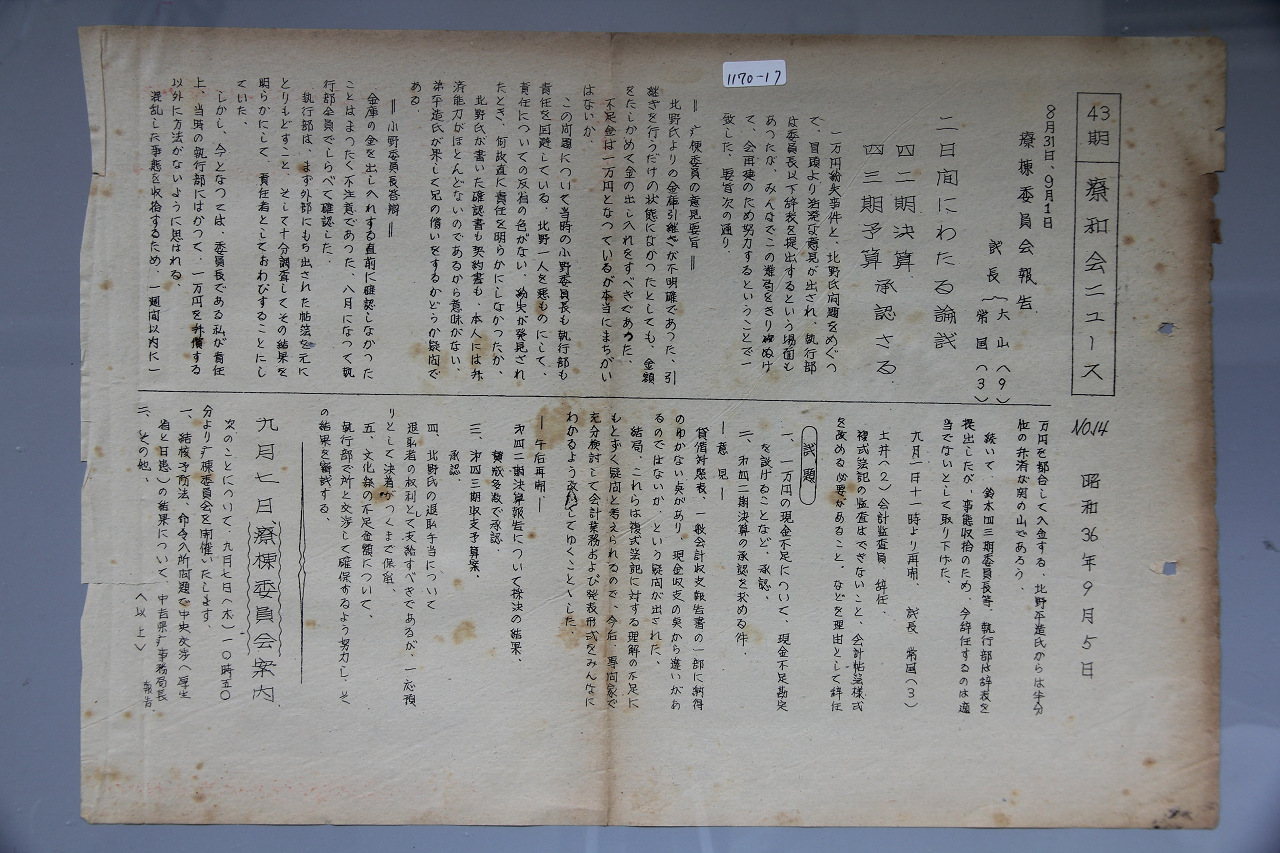 1170-17
43期 療和会ニュース
No.14 昭和36年9月5日
8月31日、9月1日
療棟委員会報告
議長 大山(9)
常国(3)
二日间にわたる論議
四二期決算
四三期予算 承認さる
一万円紛失事件と、北野氏问題をめぐっ
て、冒頭より活発な意見が出され、執行部
は委員長以下辞表を提出するという場面も
あったが、みんなでこの難局をきりぬけ
て、会再建のため努力するということで一
致した、要旨次の通り
‖疒棟委員の意見要旨‖
北野氏よりの金庫引継ぎが不明確であった、引
継ぎを行うだけの状態になかったとしても、金額
をたしかめて金の出し入れをすべきであった、
不足金は一万円となっているが本当にまちがい
はないか、
この问題について当時の小野委員長も執行部も
責任を回避している、北野一人を悪ものにして、
責任についての反省の色がない、紛失が発見され
たとき、何故直に責任を明らかにしなかったか、
北野氏が書いた確認書も契約書も、本人には弁
済能力がほとんどないのであるから意味がない、
弟平造氏が果して兄の償いをするかどうか疑问で
ある
‖小野委員長答辯‖
金庫の金を出し入れする直前に確認しなかった
ことはまったく不注意であった、八月になって執
行部全員でしらべて確認した。
執行部は、まず外部にもち出された帖簿を元に
とりもどすこと、そして十分調査してその結果を
明らかにして、責任者としておわびすることにし
ていた。
しかし、今となっては、委員長である私が責任
上、当時の執行部にはかって、一万円を弁償する
以外に方法がないように思はれる。
混乱した事態を収拾するため、一週间以内に一
万円を都合して入金する、北野平造氏からは半分
位の弁済が関の山であろう、
続いて、鈴木四三期委員長等、執行部は辞表を
提出したが、事態収拾のため、今辞任するのは適
当でないとして取り下げた、
九月一日十一時より再開、 議長 常国(3)
土井(2)会計監査員、辞任、
複式簿記の監査はできないこと、会計帖簿様式
を改める必要があること、などを理由として辞任
議題
一、一万円の現金不足について、現金不足勘定
を設けることなど、承認、
二、第四二期決算の承認を求める件、
―意見―
貸借対照表、一般会計収支報告書の一部に納得
のゆかない点があり、現金収支の矣から違いがあ
るのではないか、という疑问が出された、
結局、これらは複式簿記に対する理解の不足に
もとずく疑问と考えられるので、今后、専问家で
充分検討して会計業務および発表形式をみんなに
わかるよう改めてゆくことゝした、
―午后再開―
第四二期決算報告について採決の結果、
賛成多数で承認、
三、第四三期収支予算案、
承認、
四、北野氏の退職手当について
退職者の权利として支給すべきであるが、一応預
りとして決着がつくまで保留、
五、文化祭の不足金額について、
執行部で所と交渉して確保するよう努力し、そ
の結果を審議する、
九月七日療棟委員会案内
次のことについて、九月七日(木)一〇時五〇
分より疒棟委員会を開催いたします、
一、結核予防法、命令入所问題で中央交渉(厚生
省と日患)の結果について、中吉県疒事務局長
報告
二、その他、
(以上)